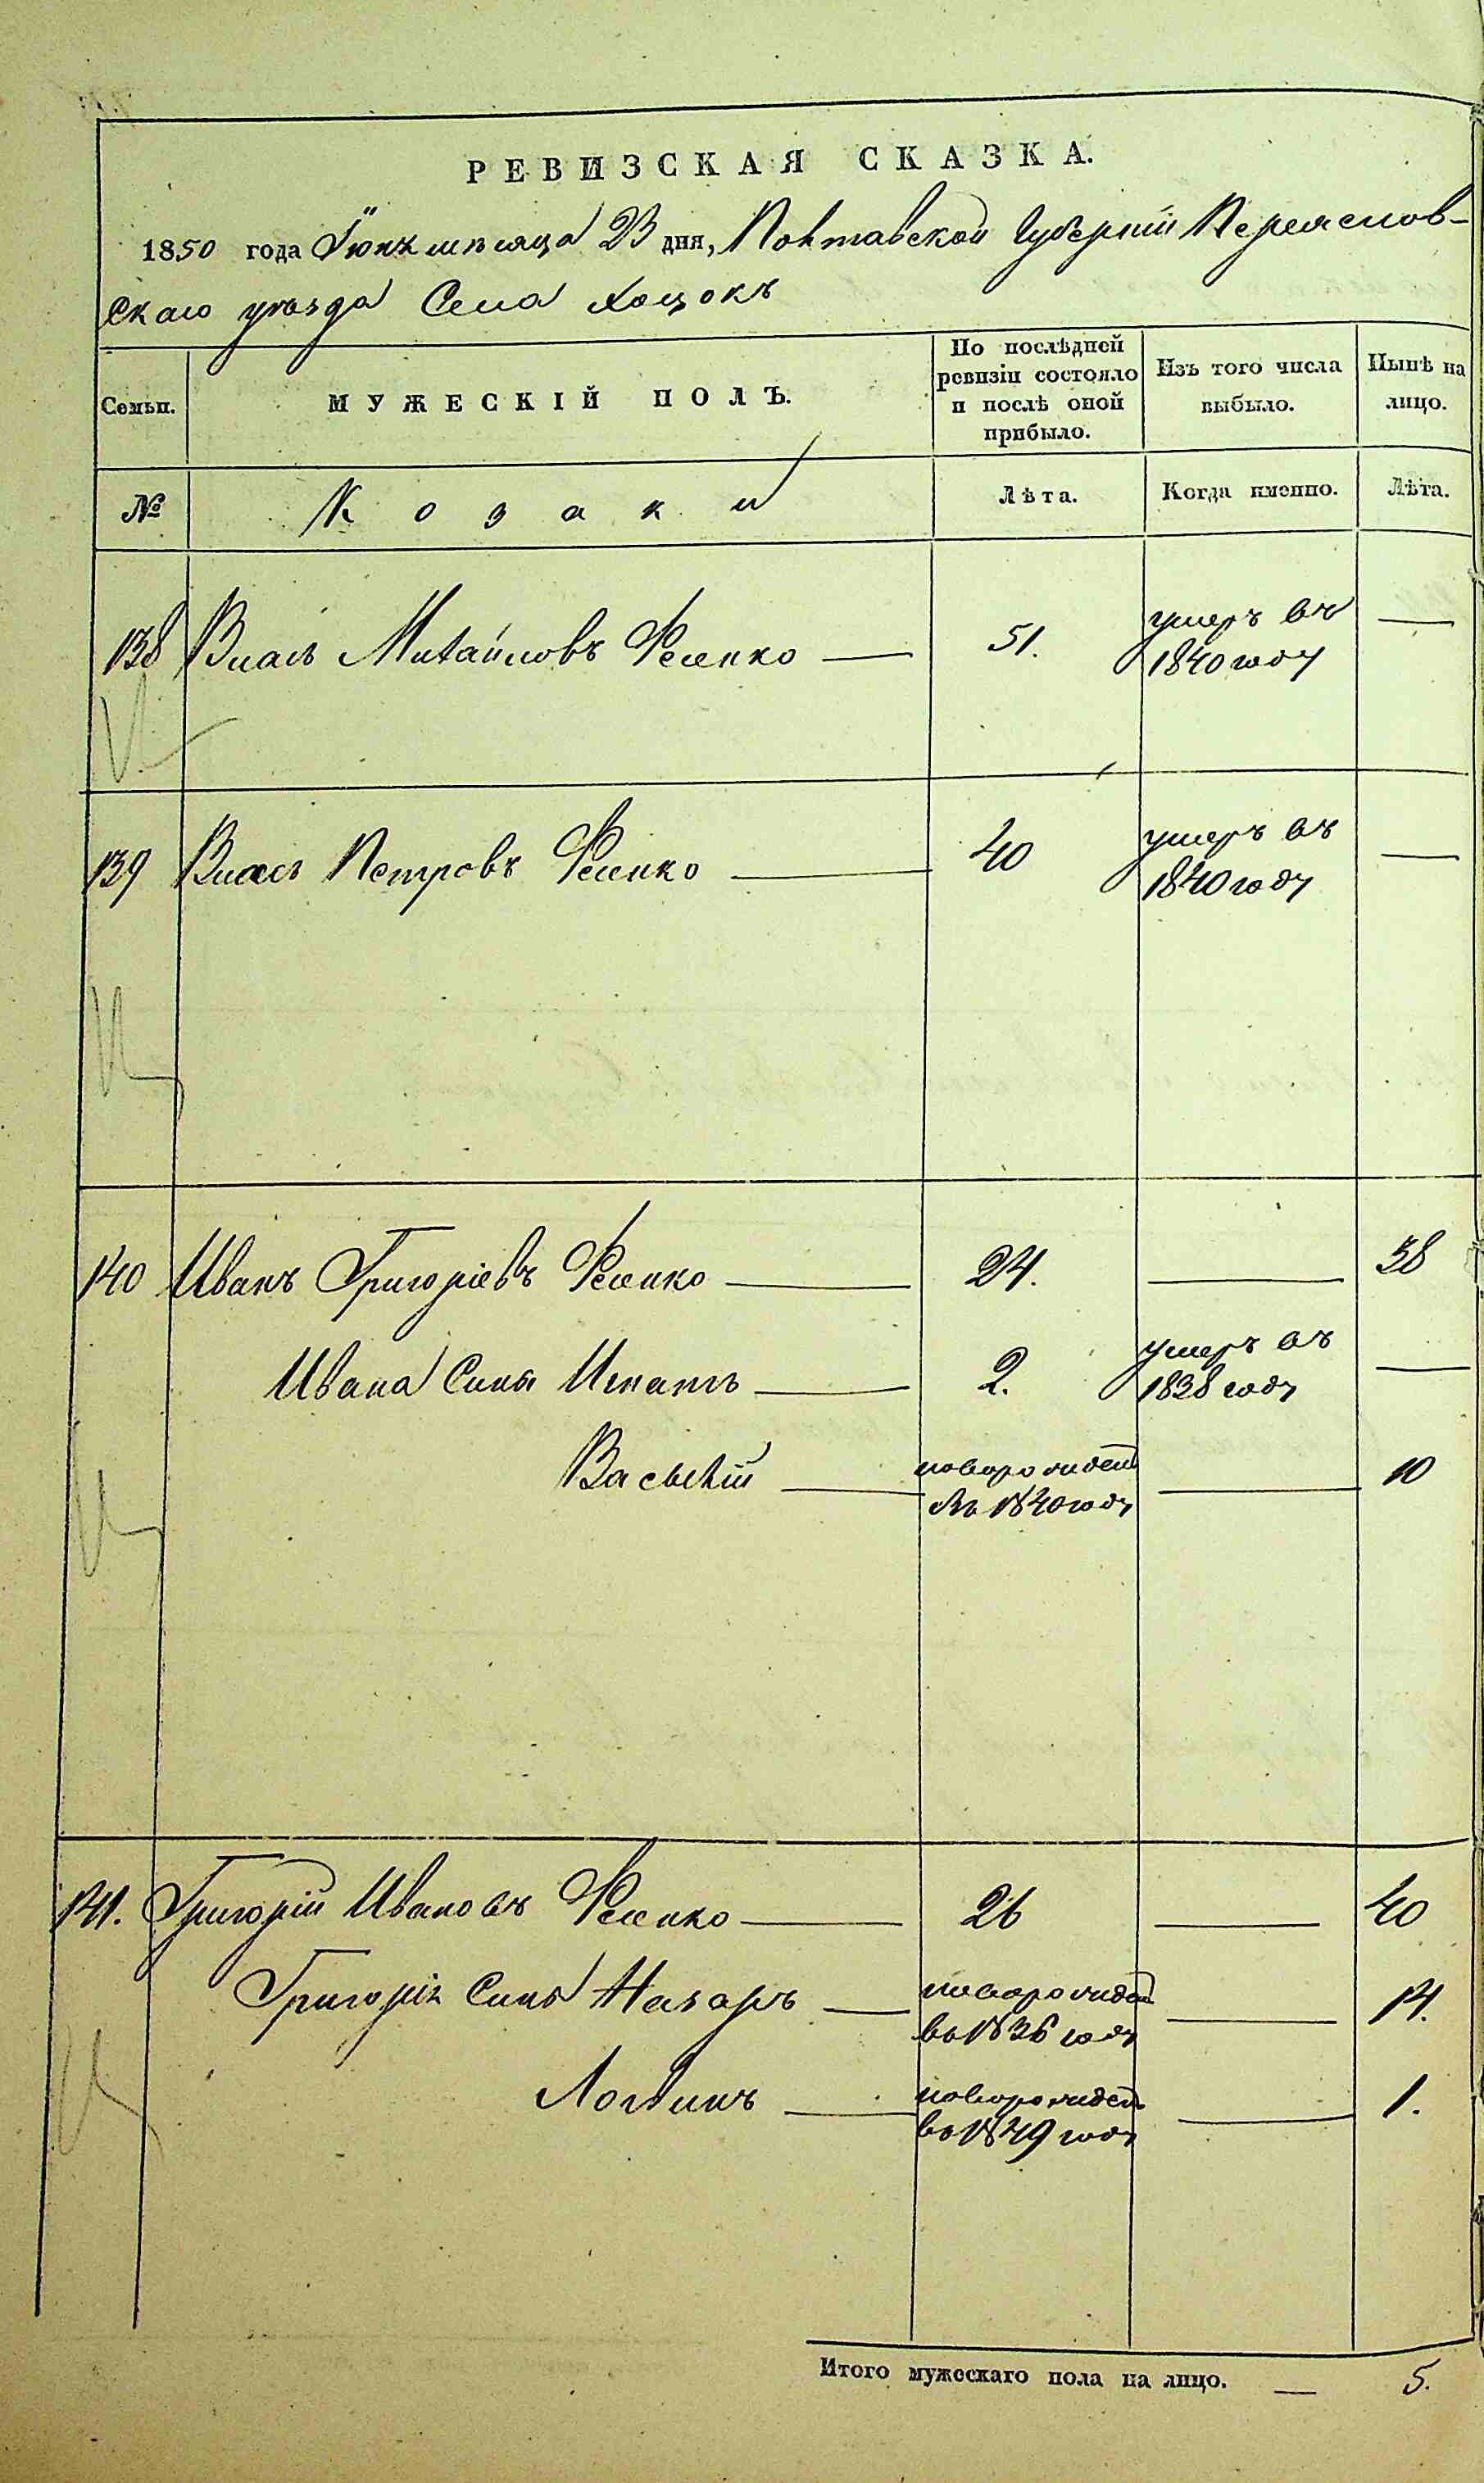 РЕВИЗСКАЯ СКАЗКА.
1850 года Іюня мѣсяца 23 дня, Полтавской Губерніи Переяслов-
скаго уѣзда Села Хоцокъ
Семьи. МУЖЕСКІЙ ПОЛЪ. По послѣдней ревизіи состояло и послѣ оной прибыло. Изъ того числа выбыло. Нынѣ на лицо.
№ Козаки Лѣта. Когда именно. Лѣта.
138 Власъ Михайловъ 51. умеръ въ —
1840 году
139 Власъ Петровъ 40 умеръ въ —
1840 году
140 Иванъ Григоріевъ 24. — 38
Ивана Сынъ Игнатъ 2. умеръ въ —
1838 году
Василій новорожден — 10
въ 1840 году
141. Григорій Ивановъ 26 — 40
Григорія Сынъ Назаръ новорожден — 14.
въ 1836 году
Логвинъ новорожден — 1.
въ 1849 году
Итого мужескаго пола на лицо. — 5.